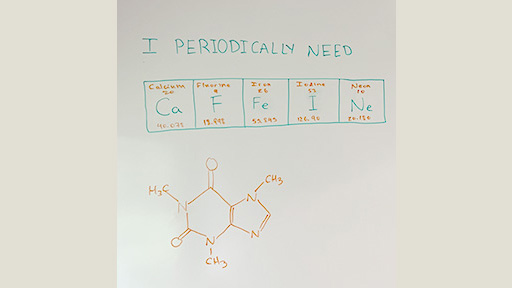 I PERIODICALLY NEED
Calcium Fluorine Iron Iodine Neon
20 9 26 53 10
Ca F Fe I Ne
40.078 18.998 55.845 126.90 20.180
O
H₃C CH₃
N N
O N N
CH₃